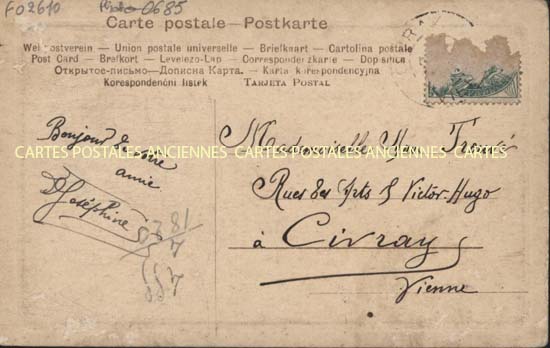 F02610 0685
Carte postale – Postkarte
Weltpostverein – Union postale universelle – Briefkaart – Cartolina postale
Post Card – Brefkort – Levelező-Lap – Correspondenzkarte – Dopisnica
Открытое-письмо – Дописна Карта. – Karta korespondencyjna
Korespondenční lístek Tarjeta Postal
Bonjour de votre
amie
Joséphine
Mademoiselle
CARTES POSTALES ANCIENNES CARTES POSTALES ANCIENNES CARTES
Rues des Arts & Victor-Hugo
à Civray
Vienne